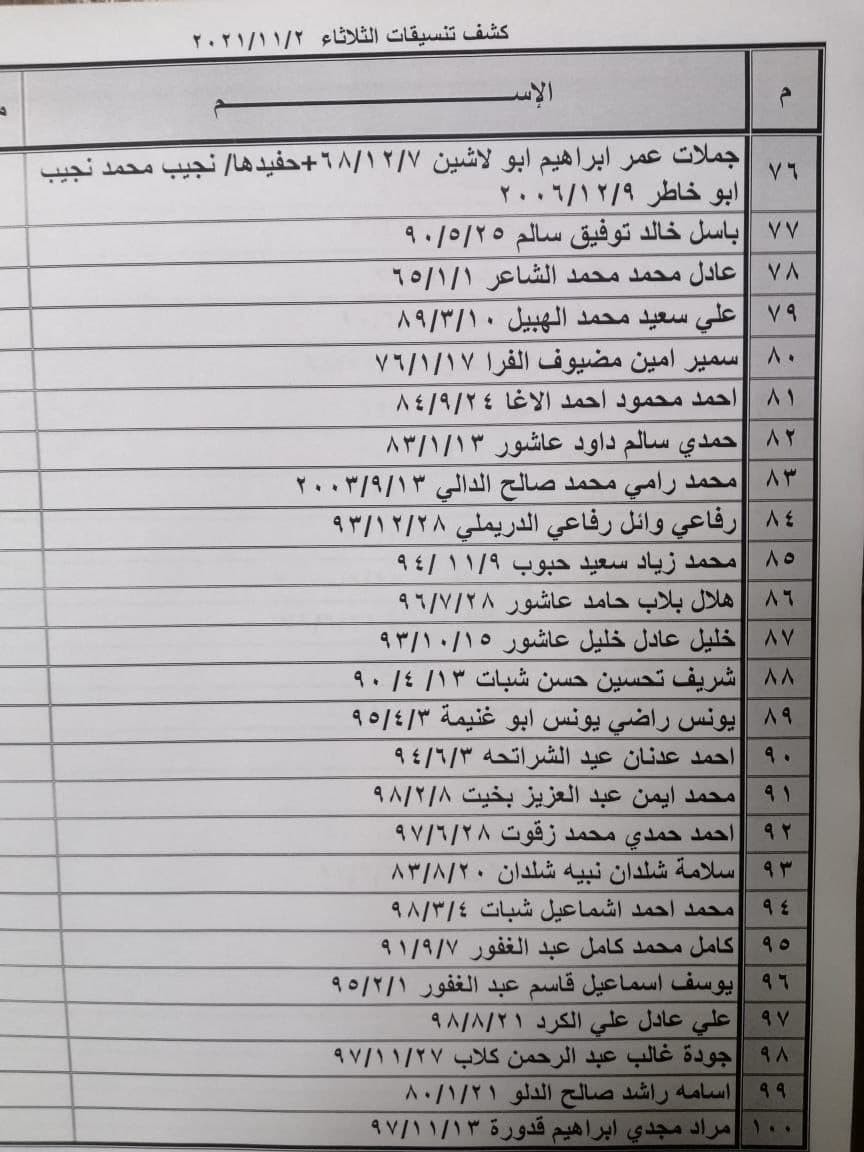 كشف تنسيقات الثلاثاء ٢٠٢١/١١/٢
م الإســـــــــم
٧٦ جملات عمر ابراهيم ابو لاشين ٦٨/١٢/٧+حفيدها/ نجيب محمد نجيب
ابو خاطر ٢٠٠٦/١٢/٩
٧٧ باسل خالد توفيق سالم ٩٠/٥/٢٥
٧٨ عادل محمد محمد الشاعر ٦٥/١/١
٧٩ علي سعيد محمد الهبيل ٨٩/٣/١٠
٨٠ سمير امين مضيوف الفرا ٧٦/١/١٧
٨١ احمد محمود احمد الاغا ٨٤/٩/٢٤
٨٢ حمدي سالم داود عاشور ٨٣/١/١٣
٨٣ محمد رامي محمد صالح الدالي ٢٠٠٣/٩/١٣
٨٤ رفاعي وائل رفاعي الدريملي ٩٣/١٢/٢٨
٨٥ محمد زياد سعيد حبوب ٩٤/ ١١/٩
٨٦ هلال بلاب حامد عاشور ٩٦/٧/٢٨
٨٧ خليل عادل خليل عاشور ٩٣/١٠/١٥
٨٨ شريف تحسين حسن شبات ٩٠ /٤ /١٣
٨٩ يونس راضي يونس ابو غنيمة ٩٥/٤/٣
٩٠ احمد عدنان عيد الشراتحه ٩٤/٦/٣
٩١ محمد ايمن عبد العزيز بخيت ٩٨/٢/٨
٩٢ احمد حمدي محمد زقوت ٩٧/٦/٢٨
٩٣ سلامة شلدان نبيه شلدان ٨٣/٨/٢٠
٩٤ محمد احمد اشماعيل شبات ٩٨/٣/٤
٩٥ كامل محمد كامل عبد الغفور ٩١/٩/٧
٩٦ يوسف اسماعيل قاسم عبد الغفور ٩٥/٢/١
٩٧ علي عادل علي الكرد ٩٨/٨/٢١
٩٨ جودة غالب عبد الرحمن كلاب ٩٧/١١/٢٧
٩٩ اسامه راشد صالح الدلو ٨٠/١/٢١
١٠٠ مراد مجدي ابراهيم قدورة ٩٧/١١/١٣